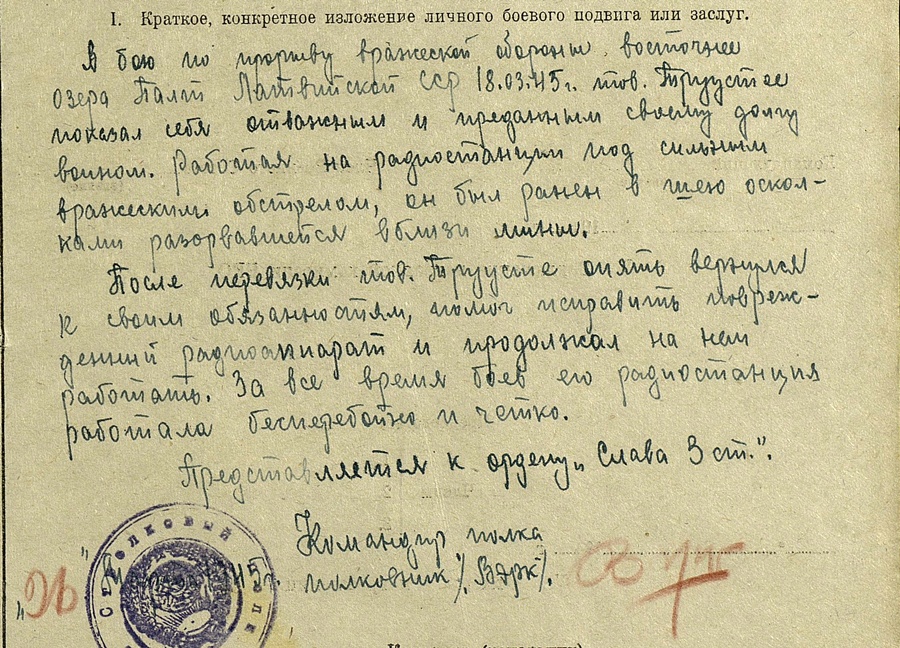 I. Краткое, конкретное изложение личного боевого подвига или заслуг.
В бою по прорыву вражеской обороны восточнее
озера Палит Латвийской ССР 18.03.45г. тов. Труусте
показал себя отважным и преданным своему долгу
воином. Работая на радиостанции под сильным
вражеским обстрелом, он был ранен в шею оскол-
ками разорвавшейся вблизи мины.
После перевязки тов. Труусте опять вернулся
к своим обязанностям, помог исправить повреж-
денный радиоаппарат и продолжал на нем
работать. За все время боев его радиостанция
работала бесперебойно и четко.
Представляется к ордену „Слава 3 ст.".
Командир полка
полковник /. Вырк/.
СТРЕЛКОВЫЙ ПОЛК